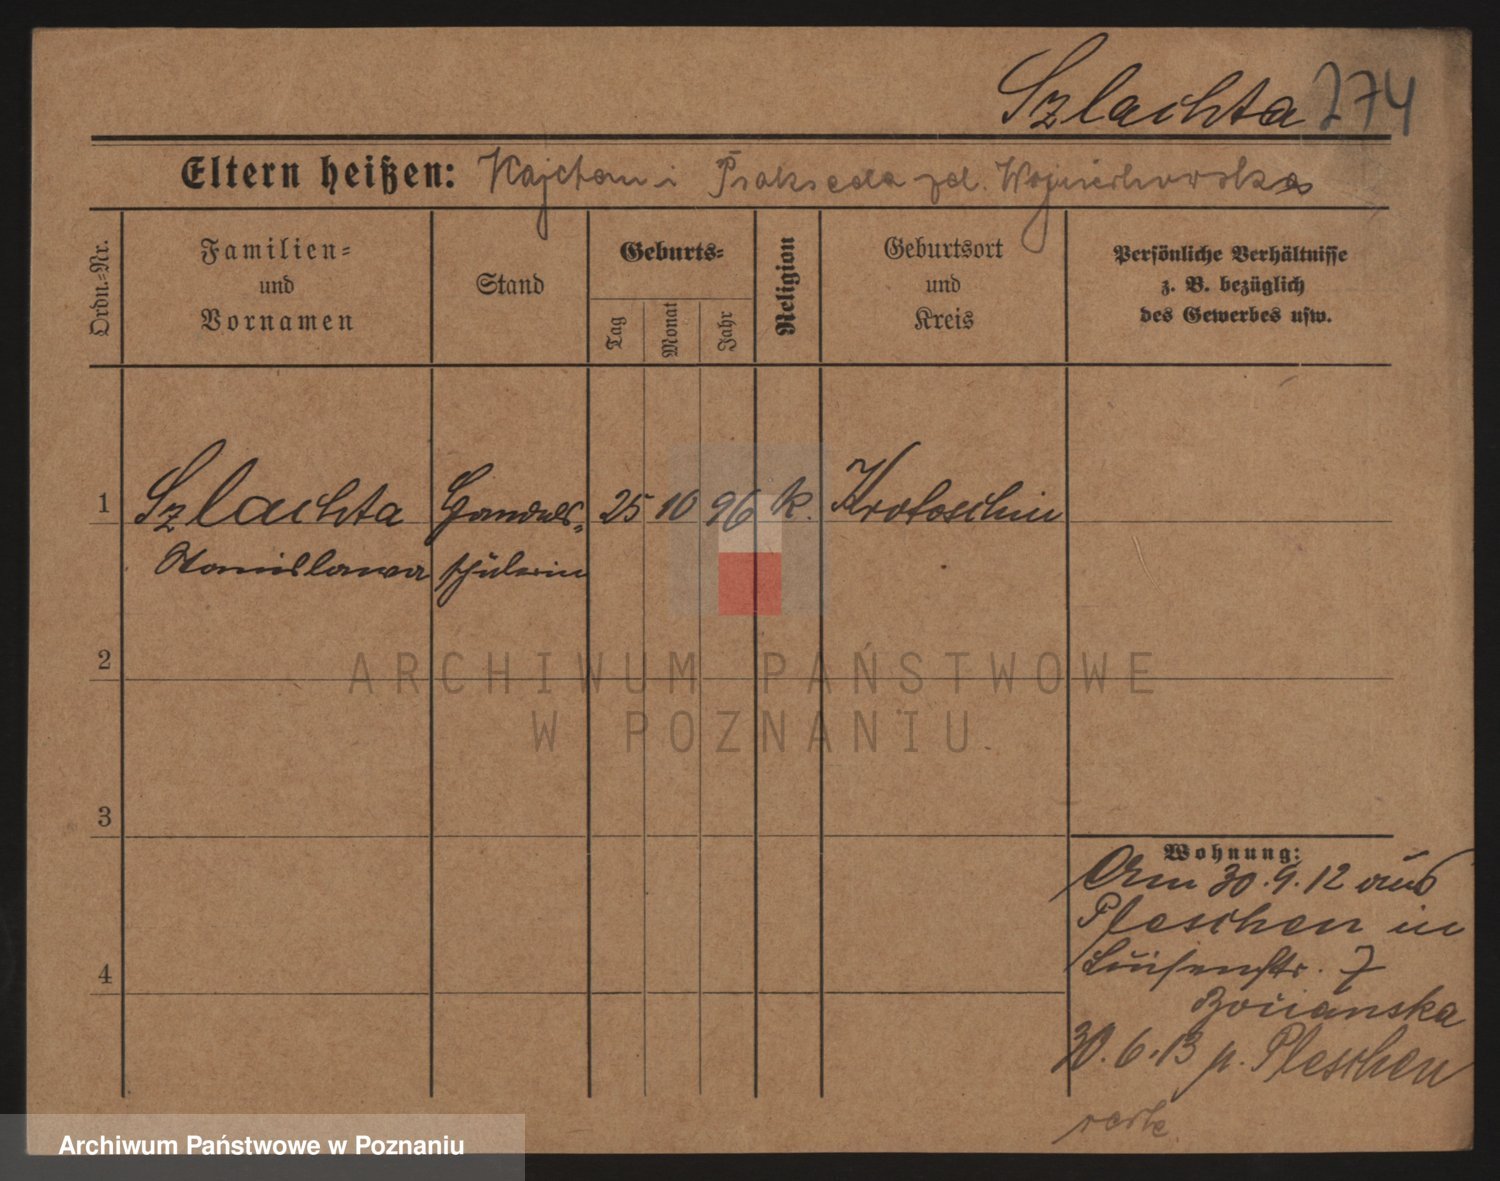 Szlachta 274
Eltern heißen: Kajetan i Prakseda zd. Wojciechowska
Ordn.=Nr.
Familien=
und
Vornamen
Stand
Geburts=
Tag
Monat
Jahr
Religion
Geburtsort
und
Kreis
Persönliche Verhältnisse
z. B. bezüglich
des Gewerbes usw.
1 Szlachta Handels= 25 10 96 k. Krotoschin
Stanislawa schülerin
2
ARCHIWUM PAŃSTWOWE
W POZNANIU
3
Wohnung:
Am 30.9.12 aus
Pleschen in
Luisenstr. 7
4
30.6.13 n. Pleschen
Archiwum Państwowe w Poznaniu